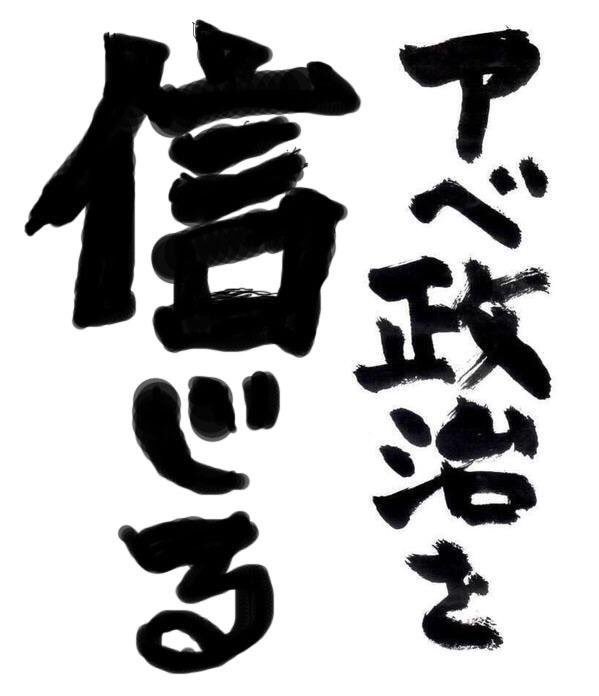 アベ政治を
信じる